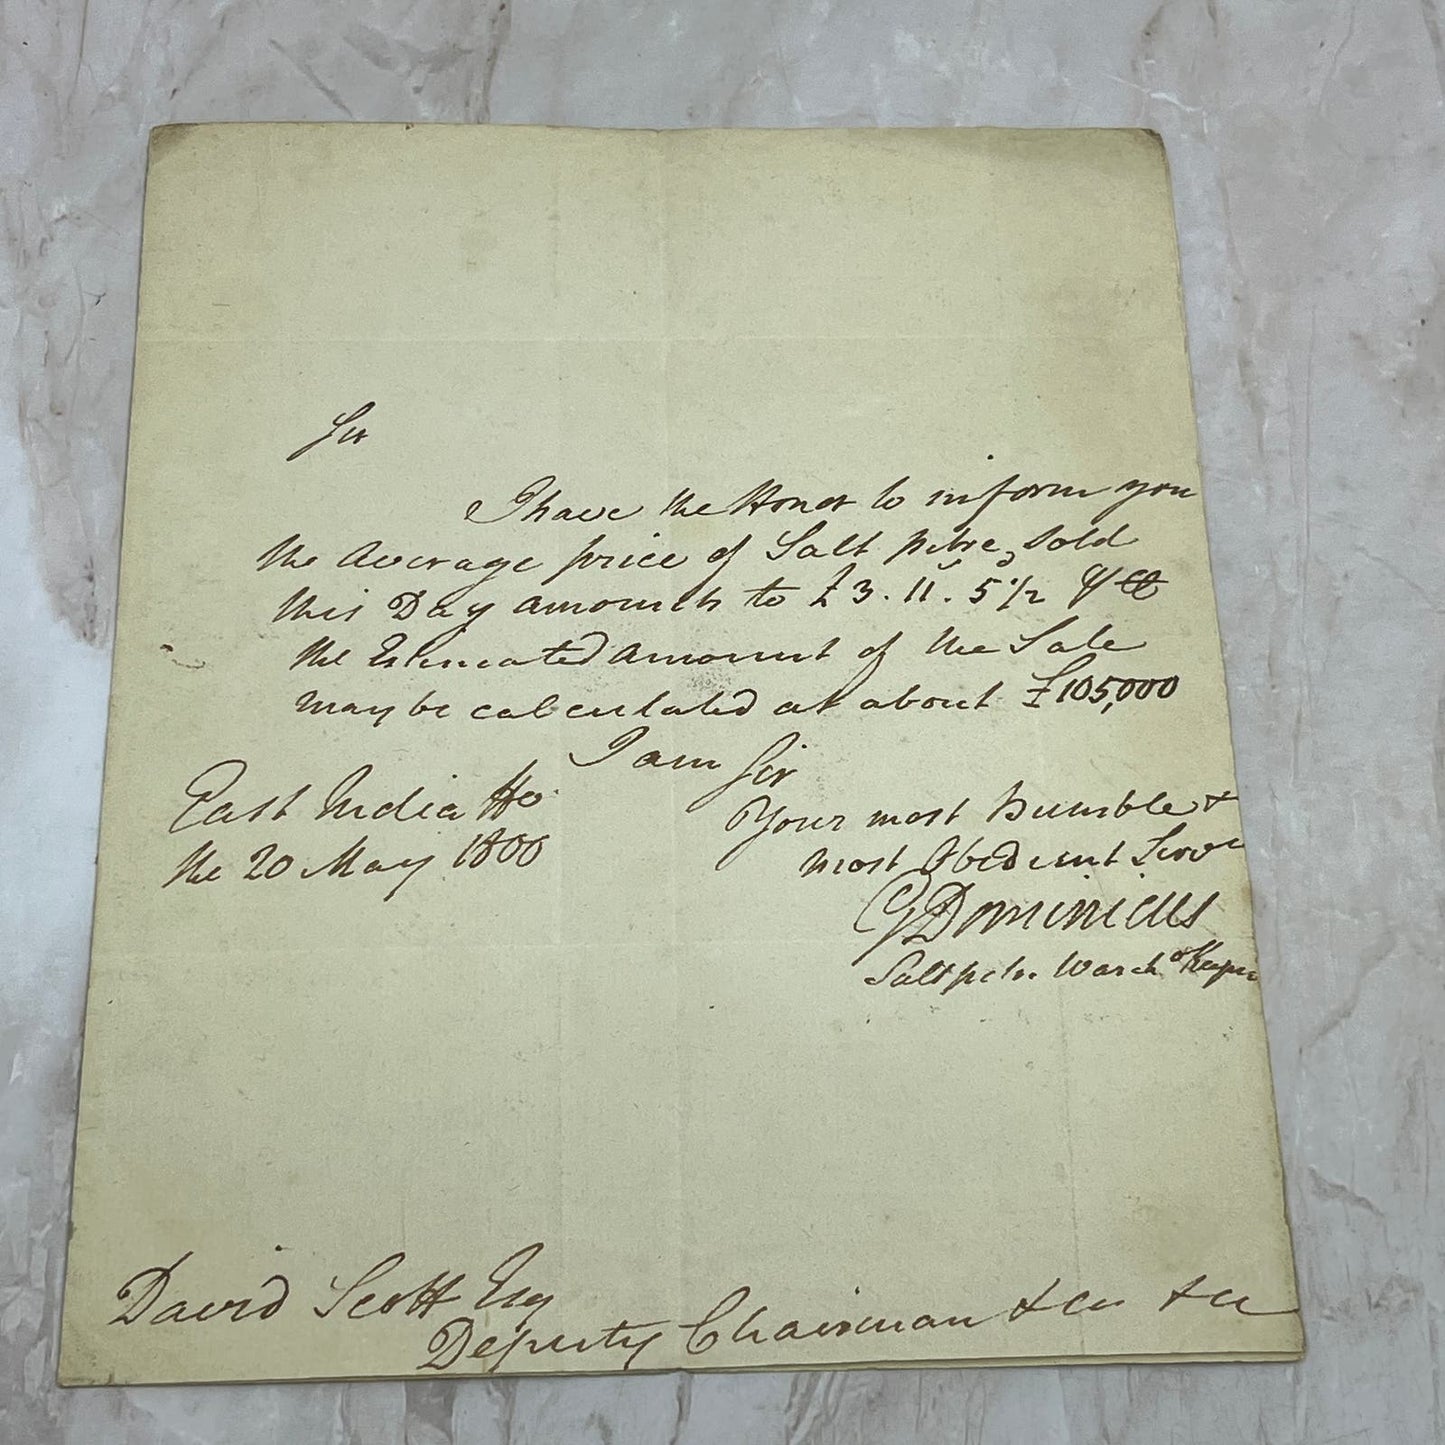 Sir
I have the Honor to inform you
the Average price of Salt petre, Sold
this Day amounts to £3.11.5½ ⅌ Ct
the Estimated Amount of the Sale
may be calculated at about £105,000
I am Sir
Your most Humble &
most Obedient Servt
GDominicus
Saltpetre Wareho Keeper
East India Ho
the 20 May 1800
David Scott Esq
Deputy Chairman &ca &ca